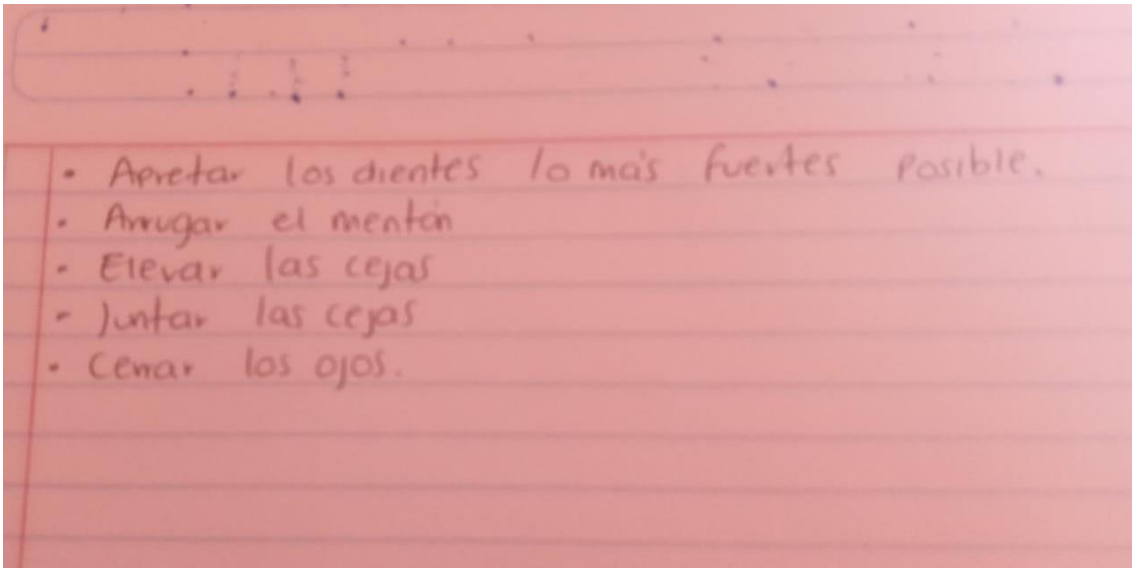 • Apretar los dientes lo más fuertes posible.
• Arrugar el mentón
• Elevar las cejas
- Juntar las cejas
• Cerrar los ojos.